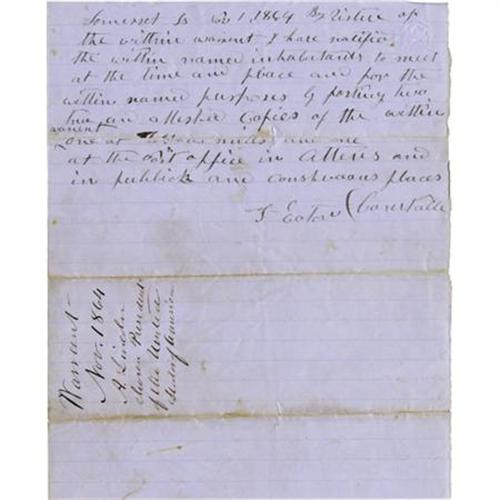 Somerset Ss Nov 1, 1864 By Virtue of
the within warrent I have notified
the within named inhabitants to meet
at the time and place and for the
within named purposes by posting two
true an attested Copies of the within
warrent
one at mills and one
at the post office in Athens and
in publick and conspicuous places
Eaton (Constable
Warrent
Nov. 1864
A. Lincoln
chosen President
of the United
States of America